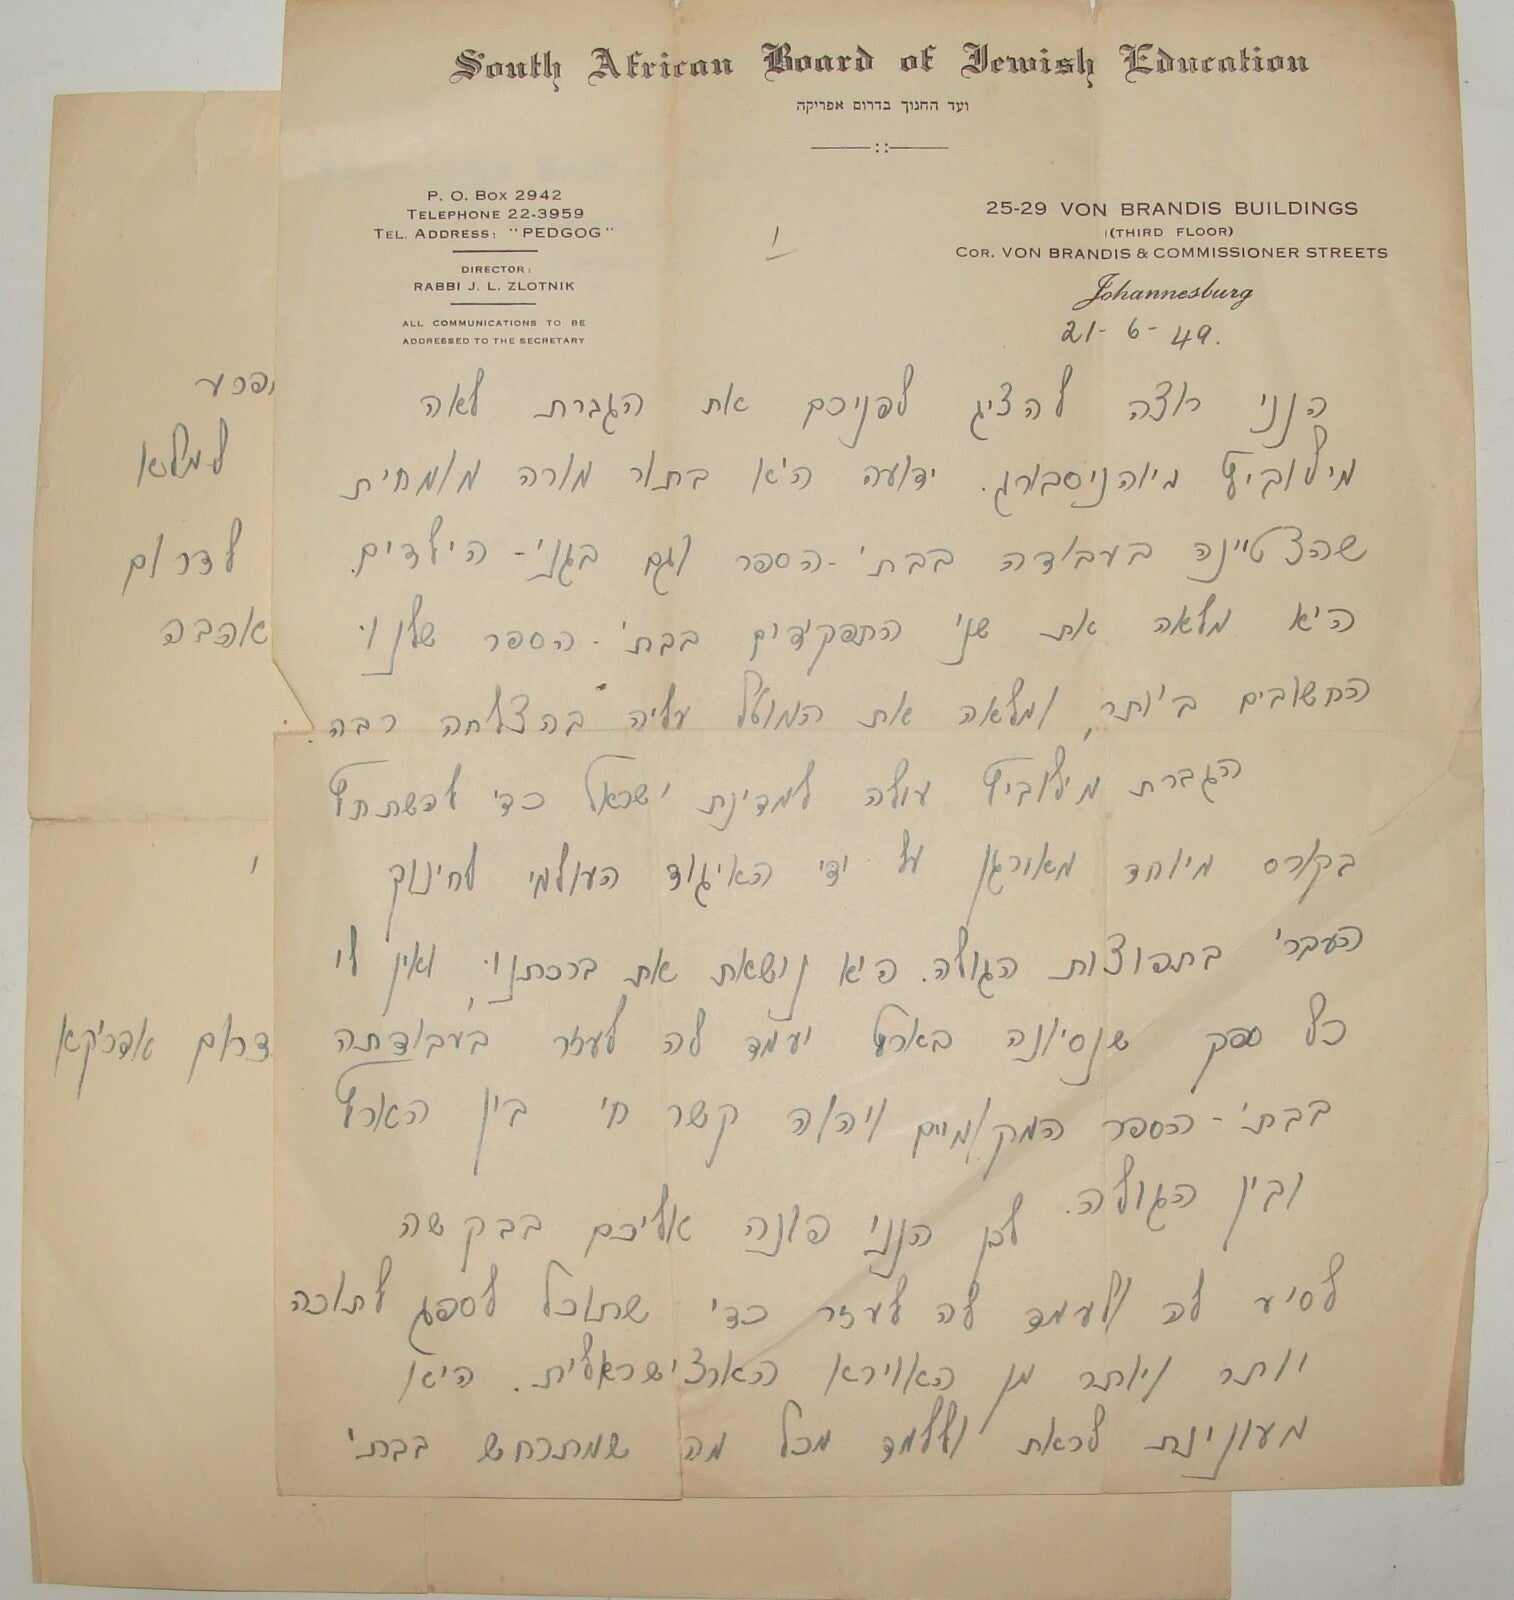 South African Board of Jewish Education
ועד החנוך בדרום אפריקה
P. O. BOX 2942
TELEPHONE 22-3959
TEL. ADDRESS: "PEDGOG"
DIRECTOR:
RABBI J. L. ZLOTNIK
ALL COMMUNICATIONS TO BE
ADDRESSED TO THE SECRETARY
1
25-29 VON BRANDIS BUILDINGS
(THIRD FLOOR)
COR. VON BRANDIS & COMMISSIONER STREETS
Johannesburg
21-6-49.
הנני רוצה להציג לפניכם את הגברת לאה
מילוביץ מיוהניסבורג. ידועה היא בתור מורה מומחית
שהצטיינה בעבודה בבתי-הספר וגם בגני-הילדים.
היא מלאה את שני התפקידים בבתי-הספר שלנו
החשובים ביותר, ומלאה את המוטל עליה בהצלחה רבה.
הגברת מילוביץ עולה למדינת ישראל כדי להשתתף
בקורס מיוחד מאורגן על ידי האיגוד העולמי לחינוך
העברי בתפוצות הגולה. היא נושאת את ברכתנו, ואין לי
כל ספק שנסיונה בארץ יעמד לה לעזר בעבודתה
בבתי-הספר המקומיים ויהוה קשר חי בין הארץ
ובין הגולה.
לכן הנני פונה אליכם בבקשה
לסיע לה ולעמד לה לעזר כדי שתוכל לספג לתוכה
יותר ויותר מן האוירא הארצישראלית. היא
מעונינת לראת וללמד מכל מה שמתרחש בבתי
למלא
לדרום
אהבה
דרום אפריקא